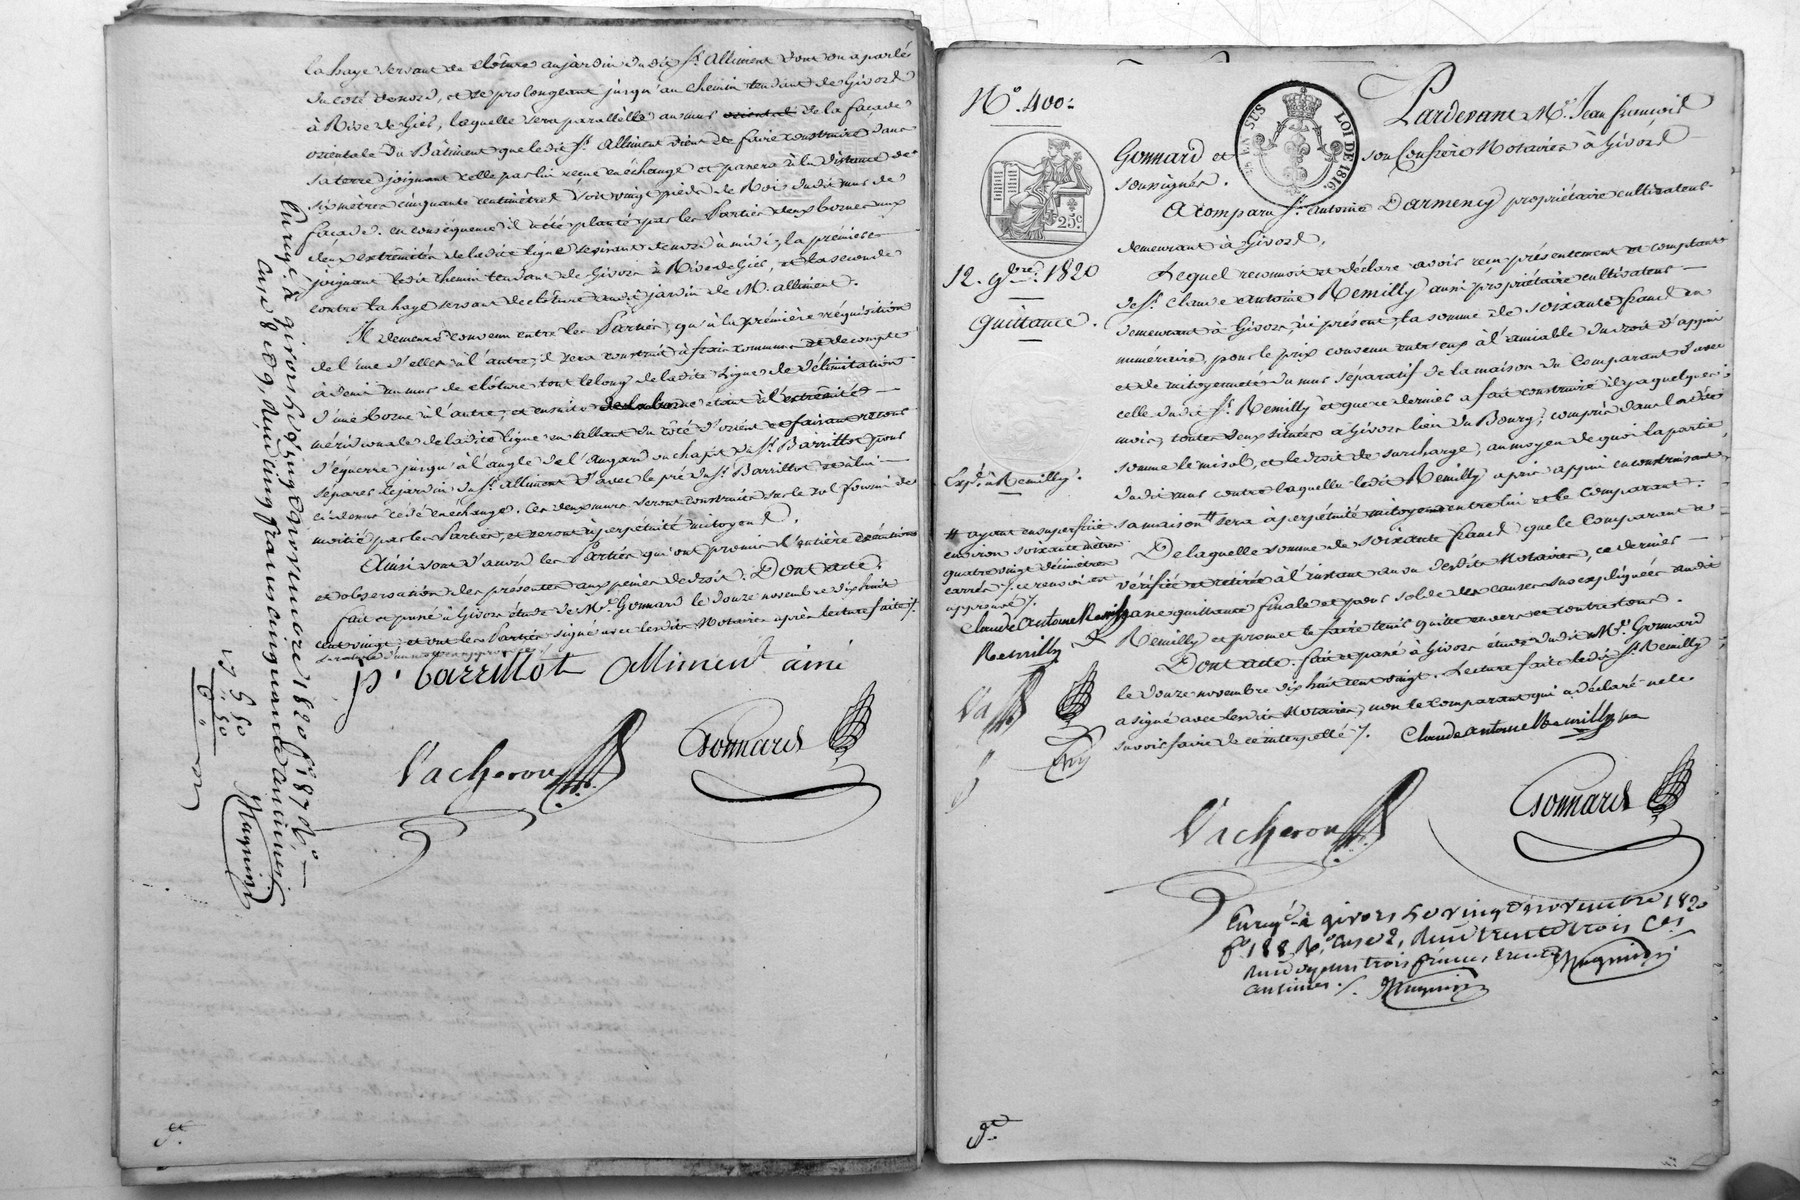 la haye servant de clôture au jardin dudit Sr. Alliment dont on a parlé
du côté de nord, et se prolongeant jusqu'au chemin tendant de Givors
à Rive de Gier, laquelle sera parallèlle au mur oriental de la façade
orientale du Bâtiment que ledit Sr. Alliment vient de faire construire dans
sa terre joignant celle par lui reçue en échange et passera à la distance de
six mètres cinquante centimètres soit vingt pieds de Roi dudit mur de
façade. en conséquence il a été planté par les Parties deux bornes aux
deux extrémités de ladite ligne se visant de nord à midi; la première
joignant ledit chemin tendant de Givors à Rive de Gier, et la seconde
contre la haye servant de clôture audit jardin de M. alliment.
Il demeure convenu entre les Parties, qu'à la première réquisition
de l'une d'elles à l'autre, il sera construit à frais communs et de compte
à demi un mur de clôture tout le long de ladite ligne de délimitation
d'une borne à l'autre, et ensuite de la borne étant à l'extrêmité
méridionale de ladite ligne en allant du côté d'orient et faisant retour
d'équerre jusqu'à l'angle de l'angard ou chapit du Sr. Barrillot pour
séparer le jardin du Sr. alliment d'avec le pré du Sr. Barrillot et celui
ci dessus cédé en échange. Ces deux murs seront construits sur le sol fourni de
moitié par les Parties, et seront à perpétuité mitoyens.
Ainsi sont d'accord les Parties qui ont promis l'entière exécution
et observation des présentes aux peines de droit. Dont acte.
fait et passé à Givors étude de Me. Gonnard le douze novembre dix huit
cent vingt, et ont les Parties signé avec lesdits Notaires après lecture faite /.
p. barrillot alliment ainé
Vacheron Gonnard
Enregé. à givors le vingt novembre 1820 fo. 187 Vo.
case 8 et 9, reçu cinq francs cinquante centimes
5 50
Magnin
No. 400.
12. 9bre. 1820
Quittance.
25c.
LOI DE 1816.
EN SUS
Pardevant Me. Jean françois
Gonnard et son Confrère Notaires à Givors
soussignés.
A comparu Sr. Antoine Darmency propriétaire cultivateur
demeurant à Givors,
Lequel reconnoit et déclare avoir reçu présentement et comptant
de Sr. Claude Antoine Remilly aussi propriétaire cultivateur
demeurant à Givors, ici présent, la somme de soixante francs en
numéraire, pour le prix convenu entr'eux à l'amiable du droit d'appui
et de mitoyenneté du mur séparatif de la maison du Comparant d'avec
celle dudit Sr. Remilly et que ce dernier a fait construire il y a quelques
mois, toutes deux situées à Givors lieu du Bourg, compris dans ladite
somme le misol, et le droit de surcharge, au moyen de quoi la partie
dudit mur contre laquelle ledit Remilly a pris appui en construisant
sa maison # sera à perpétuité mitoyenne entre lui et le Comparant.
De laquelle somme de soixante francs que le Comparant a
vérifiée et retirée à l'instant au vu desdits Notaires, ce dernier
passe quittance finale et pour solde des causes sus expliquées audit
Remilly et promet le faire tenir quitte envers et contre tous.
Dont acte. fait et passé à Givors étude dudit Me. Gonnard
le douze novembre dix huit cent vingt. Lecture faite ledit Sr. Remilly
a signé avec lesdits Notaires, non le comparant qui a déclaré ne le
savoir faire de ce interpellé /. Claude antoine Remilly
Expé. à Remilly.
# ayant en superficie
environ soixante mètres
quatre vingt décimètres
carrés /. ce renvoi est
approuvé /.
Claude antoine Remilly
Remilly
Va G
Vacheron Gonnard
Enregé. à givors le vingt novembre 1820
fo. 188 Ro. case 2, reçu trente trois Ces.
Magnin
centimes /. Magnin